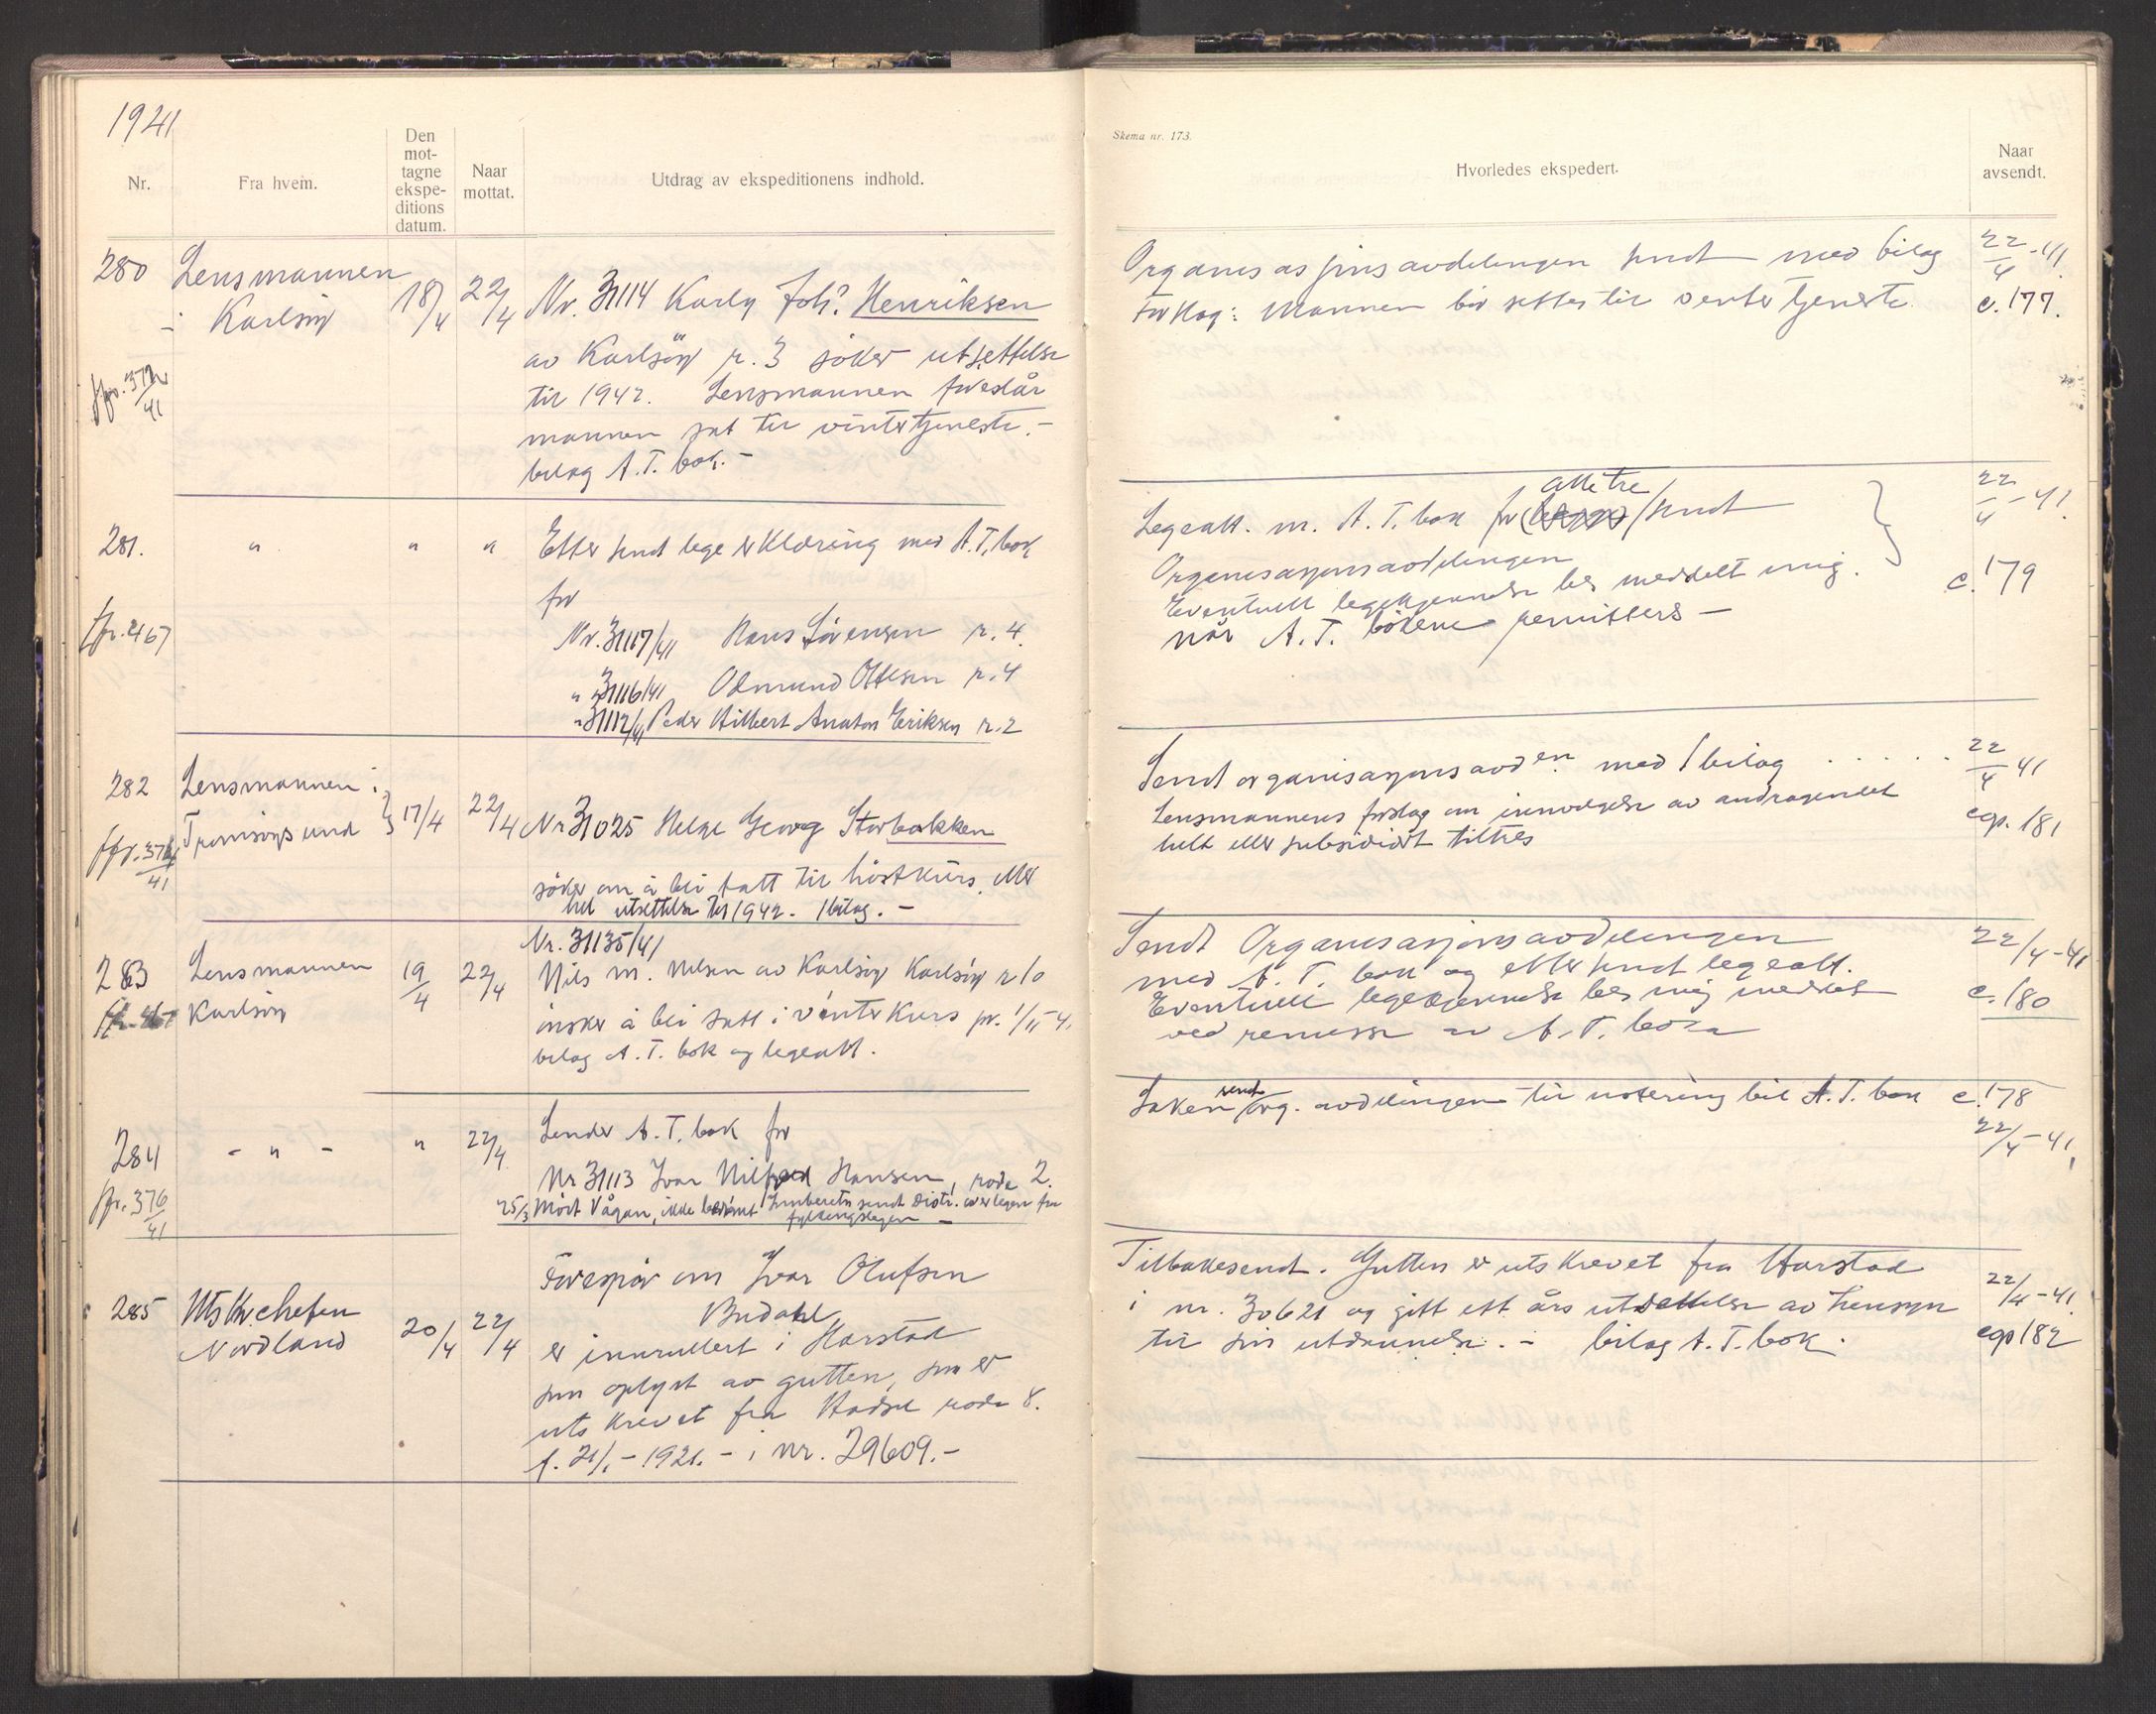 1941
Nr.
Fra hvem.
Den
mot-
tagne
ekspe-
ditions
datum.
Naar
mottat.
Utdrag av ekspeditionens indhold.
280
Lensmannen
i Karlsøy
18/4
22/4
Nr. 31114 Karly Joh? Henriksen
av Karlsöy r. 3 söker utsettelse
til 1942. Lensmannen foreslår
mannen sat til vintertjeneste. -
bilag A.T. bok. -
281.
"
"
"
Etter sendt lege erklæring med A.T. bok
for
fr. 467
Nr. 31117/41 Hans Sörensen r. 4.
" 31116/41 Odmund Ottesen r. 4
" 31112/41 Peder Hilbert Anaton Eriksen r. 2
282
Lensmannen i
Tromsöysund
17/4
22/4
Nr 31025 Helge Georg Storbakken
söker om å bli satt til höstkurs eller
hel utsettelse til 1942. 1 bilag. -
283
Lensmannen
Karlsöy
19/4
22/4
Nr. 31135/41
Nils M. Nilsen av Karlsöy Karlsöy r 10
önsker å bli satt i vinterkurs pr. 1/11-41.
bilag A.T. bok og legeatt.
284
- " -
"
22/4
fr. 376/41
Sender A.T. bok for
Nr 31113 Ivar Hilfred Hansen, rode 2.
25/3 Mört Vågan, ikke sendt Distr. overlegen fra
285
Utskr.chefen
Nordland
20/4
22/4
Forespör om Ivar Olufsen
Budahl
er innrullert i Harstad
som oplyst av gutten, som er
utskrevet fra Hadsel rode 8.
f. 21/1 - 1921. - i nr. 29609. -
Skema nr. 173.
Hvorledes ekspedert.
Naar
avsendt.
Organisasjonsavdelingen sendt med bilag
22/4-41.
Forslag: Mannen bör settes til vintertjeneste
c. 177.
alle tre
Legeatt. m. A.T. bok for sendt
22/4-41.
Organisasjonsavdelingen
Eventuell legekjennelse bes meddelt mig.
c. 179
når A.T. bökene remitters -
Sendt organisasjonsavd en med 1 bilag . . . . .
22/4 41
Lensmannens forslag om innvilgelse av andragendet
cop. 181
helt eller subsidiært tiltres
Sendt Organisasjonsavdelingen
22/4-41
med A.T. bok og etter sendt legeatt.
Eventuell legekjennelse bes mig meddelt
c. 180
ved remisse av A.T. boka
Saken sendt org. avdelingen til notering bil A.T. bok
c. 178
22/4-41.
Tilbakesendt. Gutten er utskrevet fra Harstad
22/4-41.
i nr. 30621 og gitt ett års utsettelse av hensyn
til sin utdannelse. - bilag A.T. bok.
cop 182